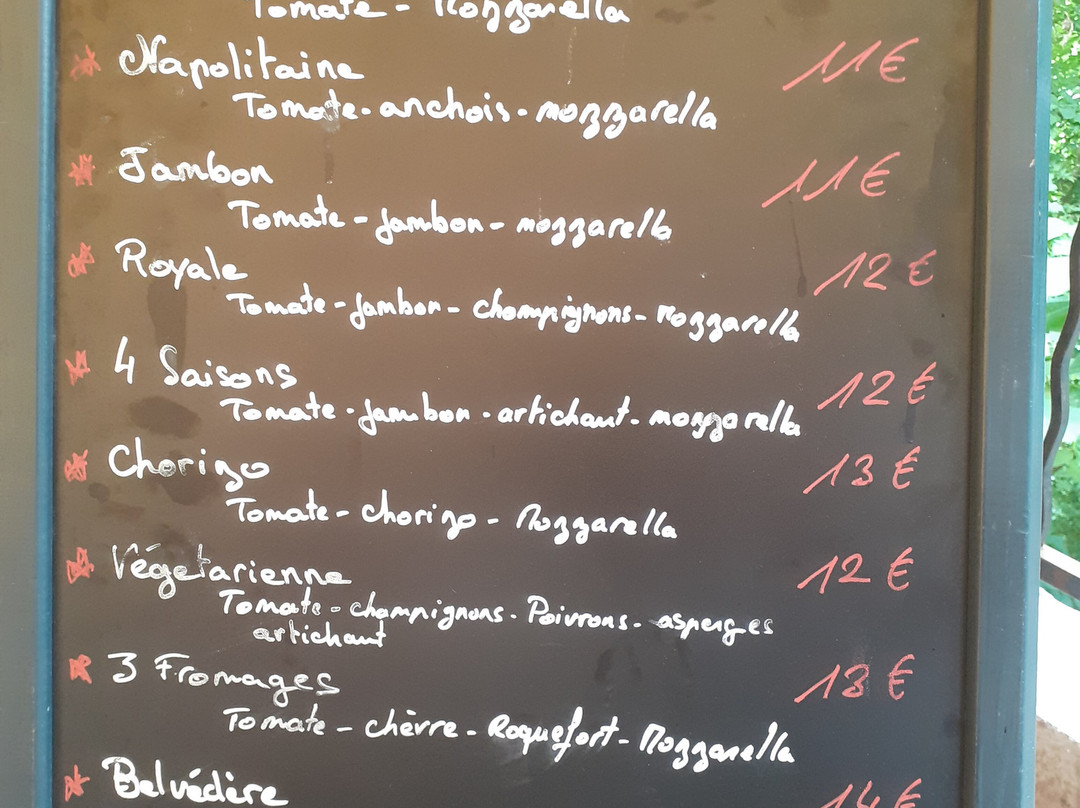 Tomate - Mozzarella
Napolitaine 11€
Tomate - anchois - mozzarella
Jambon 11€
Tomate - jambon - mozzarella
Royale 12€
Tomate - jambon - champignons - Mozzarella
4 Saisons 12€
Tomate - jambon - artichaut - mozzarella
Chorizo 13€
Tomate - chorizo - Mozzarella
Végétarienne 12€
Tomate - champignons - Poivrons - asperges
artichaut
3 Fromages 13€
Tomate - chèvre - Roquefort - Mozzarella
Belvédère 14€